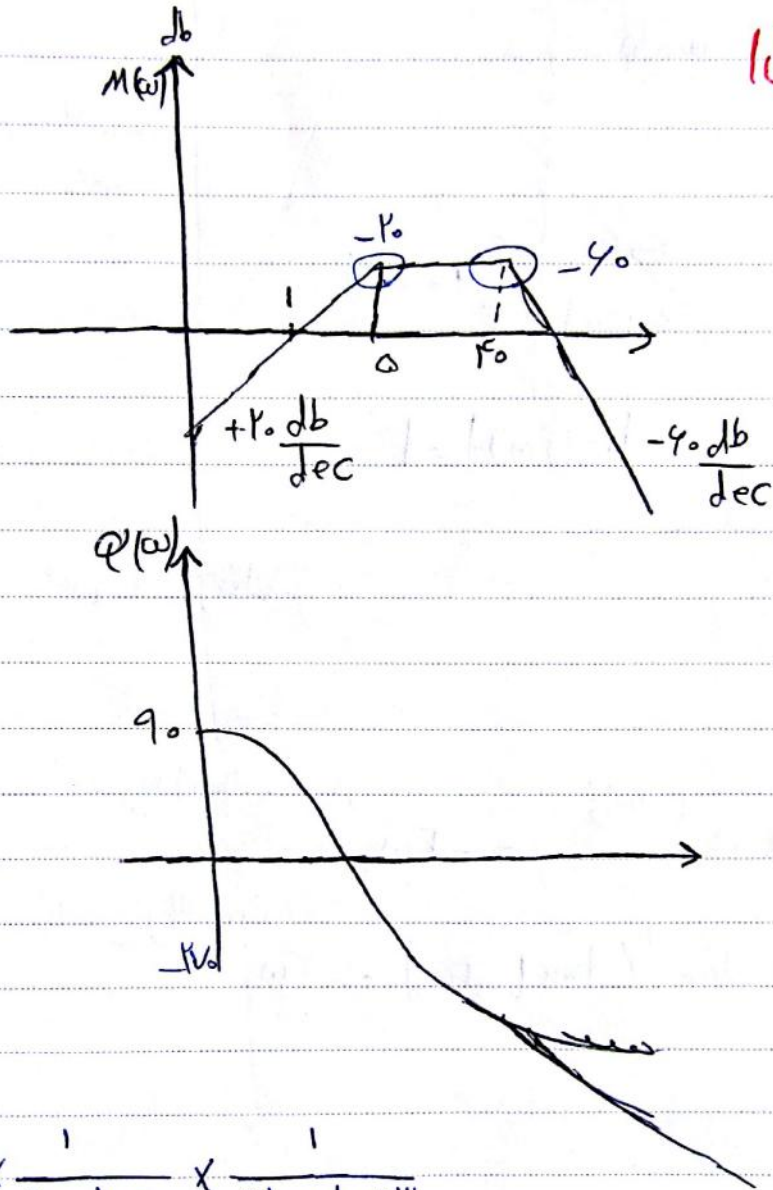 db
M(ω)
-۲۰
-۶۰
۱
۵
۴۰
+۲۰ db/dec
-۶۰ db/dec
φ(ω)
۹۰
-۲۷۰
۱ ۱
× ———— × ————